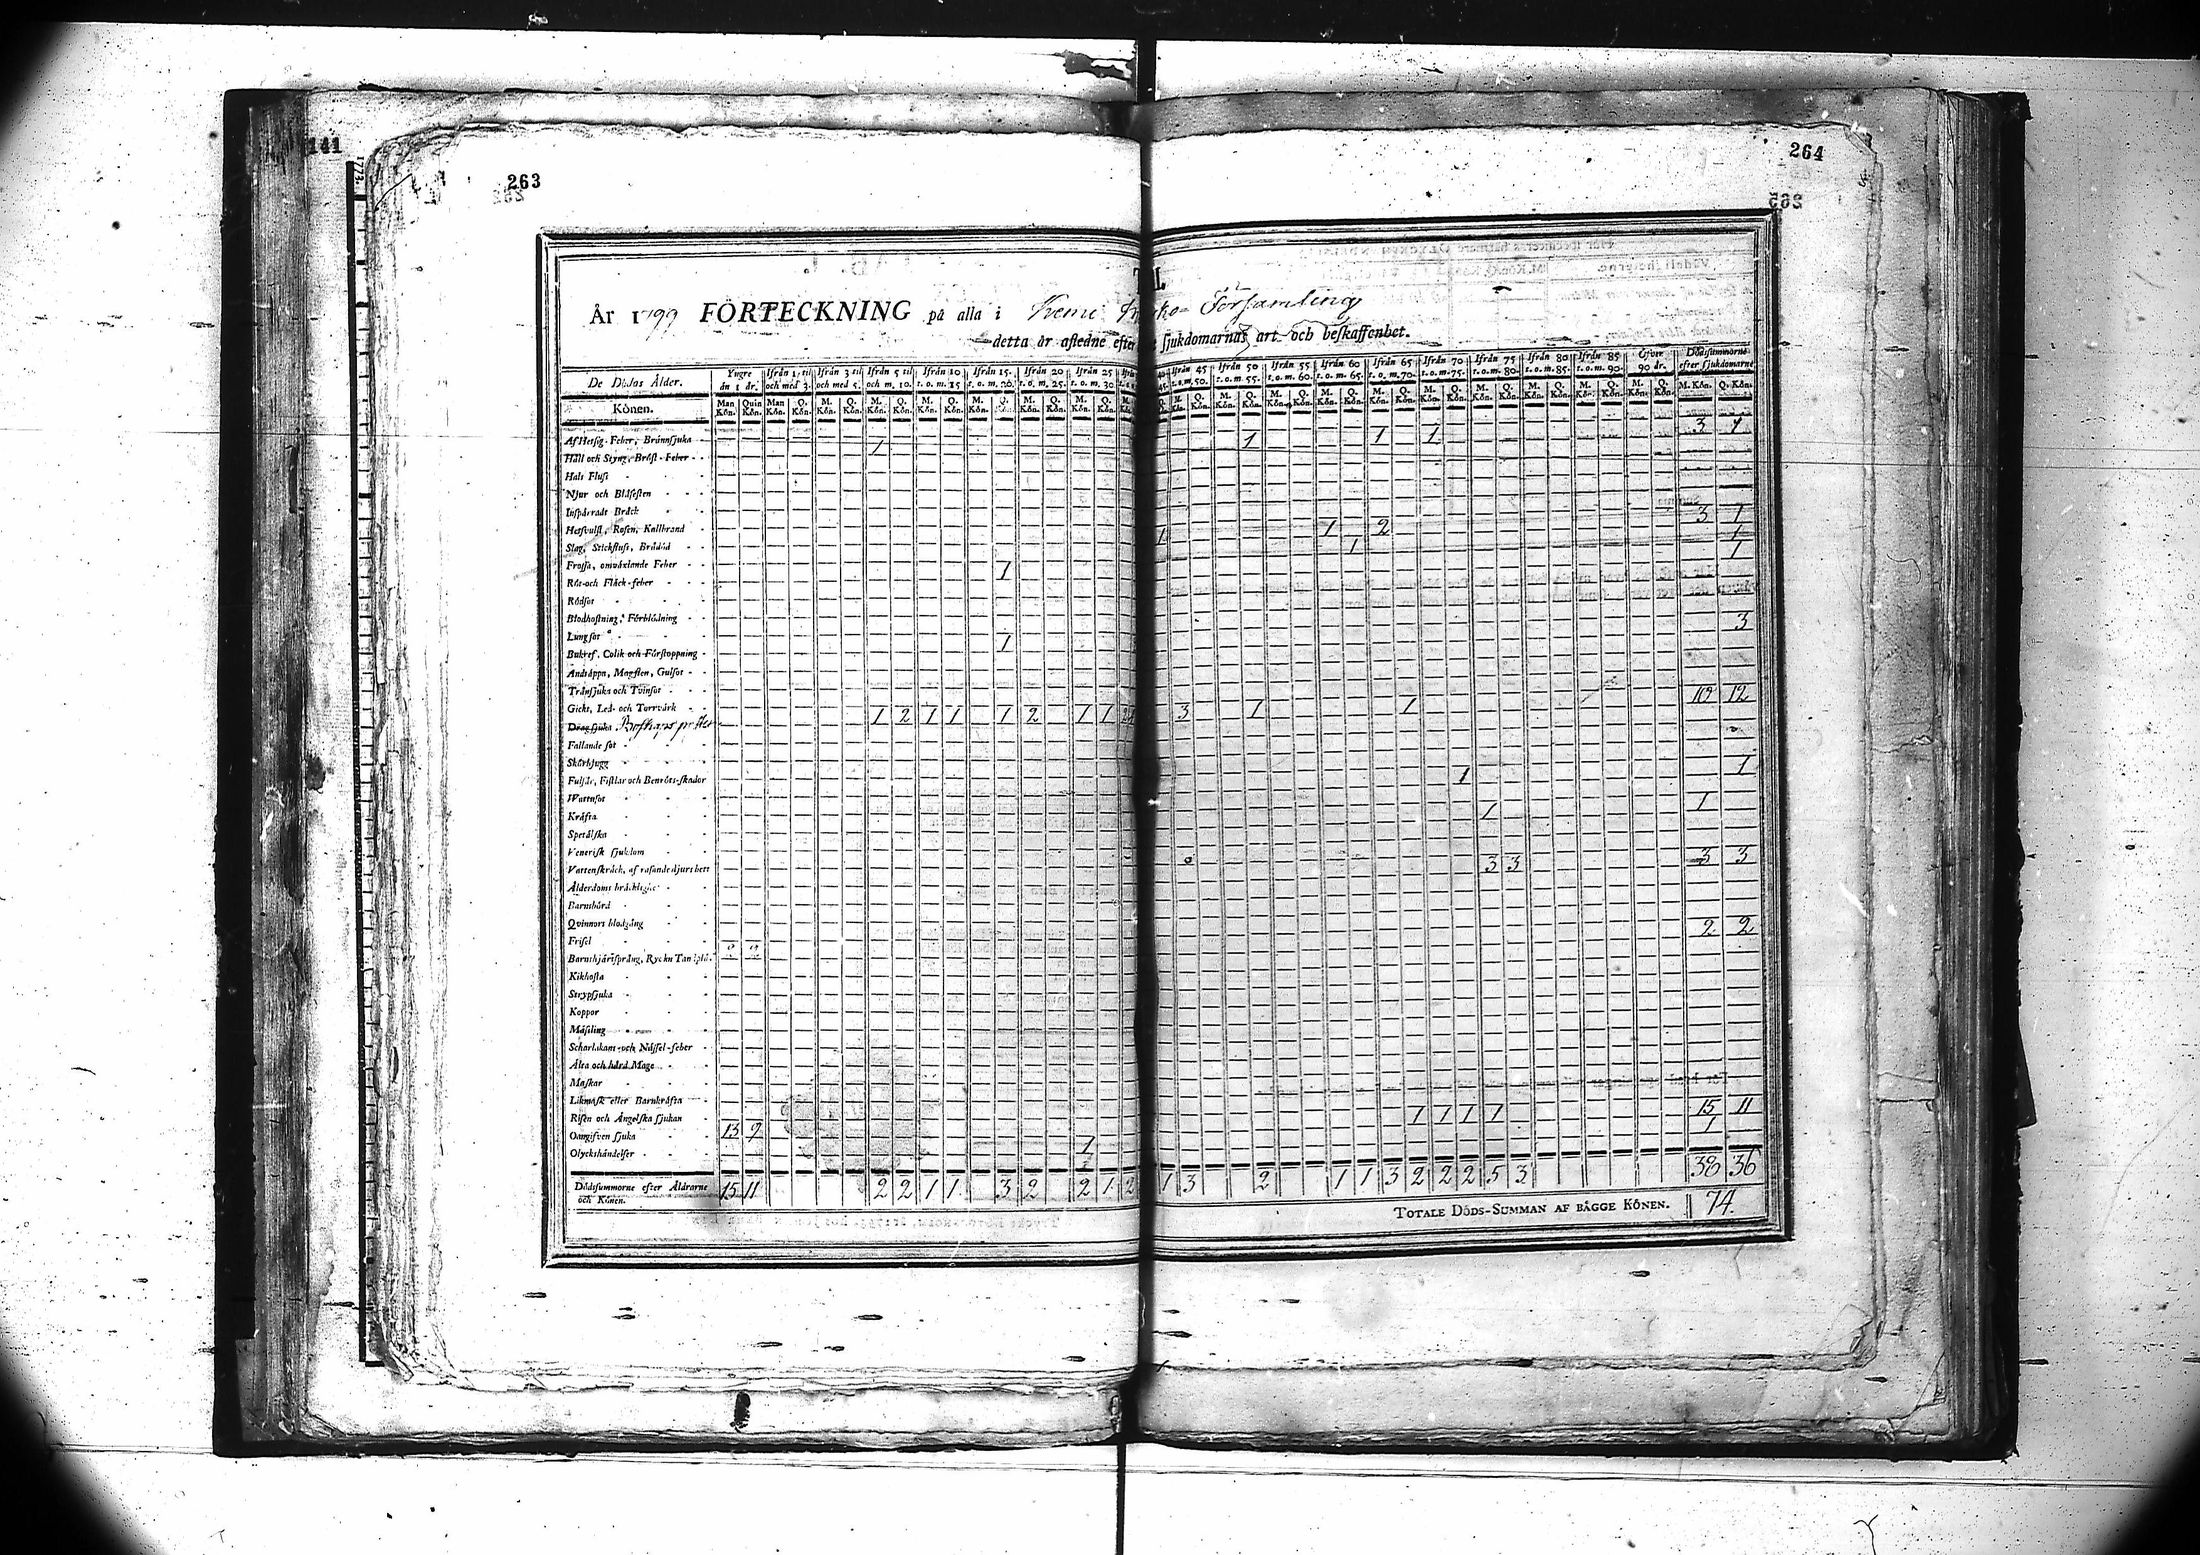 141
263
264
År 1799 FÖRTECKNING på alla i Kemi Kyrko- Församling
detta år afledne efter sjukdomarnas art och beskaffenhet.
De Dödas Ålder. Yngre än 1 år. Ifrån 1 til och med 3. Ifrån 3 til och med 5. Ifrån 5 til och m. 10. Ifrån 10 t. o. m. 15. Ifrån 15 t. o. m. 20. Ifrån 20 t. o. m. 25. Ifrån 25 t. o. m. 30. Ifrån 45 t. o. m. 50. Ifrån 50 t. o. m. 55. Ifrån 55 t. o. m. 60. Ifrån 60 t. o. m. 65. Ifrån 65 t. o. m. 70. Ifrån 70 t. o. m. 75. Ifrån 75 t. o. m. 80. Ifrån 80 t. o. m. 85. Ifrån 85 t. o. m. 90. Öfver 90 år. Dödsummorne efter sjukdomarne
Könen. Man Kön. Quin Kön. Man Kön. Q. Kön. M. Kön. Q. Kön. M. Kön. Q. Kön. M. Kön. Q. Kön. M. Kön. Q. Kön. M. Kön. Q. Kön. M. Kön. Q. Kön. M. Kön. Q. Kön. M. Kön. Q. Kön. M. Kön. Q. Kön. M. Kön. Q. Kön. M. Kön. Q. Kön. M. Kön. Q. Kön. M. Kön. Q. Kön. M. Kön. Q. Kön. M. Kön. Q. Kön. M. Kön. Q. Kön. M. Kön. Q. Kön.
Af Hetsig Feber, Brännsjuka 1 1 1 1 3 1
Håll och Styng, Bröst-Feber
Hals Fluss
Njur och Blåsesten
Inspärradt Bråck
Hetsvulst, Rosen, Kallbrand 1 1 2 3 1
Slag, Stickfluss, Brådöd 1 1
Frossa, omväxlande Feber 1 1
Röt-och Fläck-feber
Rödsot
Blodhostning, Förblödning
Lungsot 1 3
Bukref, Colik och Förstoppning
Andtäppa, Magsten, Gulsot
Trånsjuka och Tvinsot
Gickt, Led- och Torrvärk 1 2 1 1 1 2 1 1 3 1 1 10 12
Dragsjuka
Fallande sot
Skörbjugg
Fulslår, Fistlar och Benröts-skador 1 1
Wattusot
Kräfta 1 1
Spetälska
Venerisk sjukdom
Vattenskräck, af rasande djurs bett 3 3 3 3
Ålderdoms bräcklighet
Barnsbörd
Qvinnors blodgång
Frisel 2 2
Barnshjärtsprång, Ryck
Kikhosta
Strypsjuka
Koppor
Mässling
Scharlakans-och Nässel-feber
Älta och hård Mage
Maskar
Likmask eller Barnkräfta
Risen och Ängelska sjukan 1 1 1 1 15 11
Oangifven sjuka 13 9 1
Olyckshändelser 1
Dödssummorne efter Åldrarne och Könen. 15 11 2 2 1 1 3 2 2 1 2 1 3 2 1 1 3 2 2 2 5 3 38 36
TOTALE DÖDS-SUMMAN AF BÄGGE KÖNEN. 74.